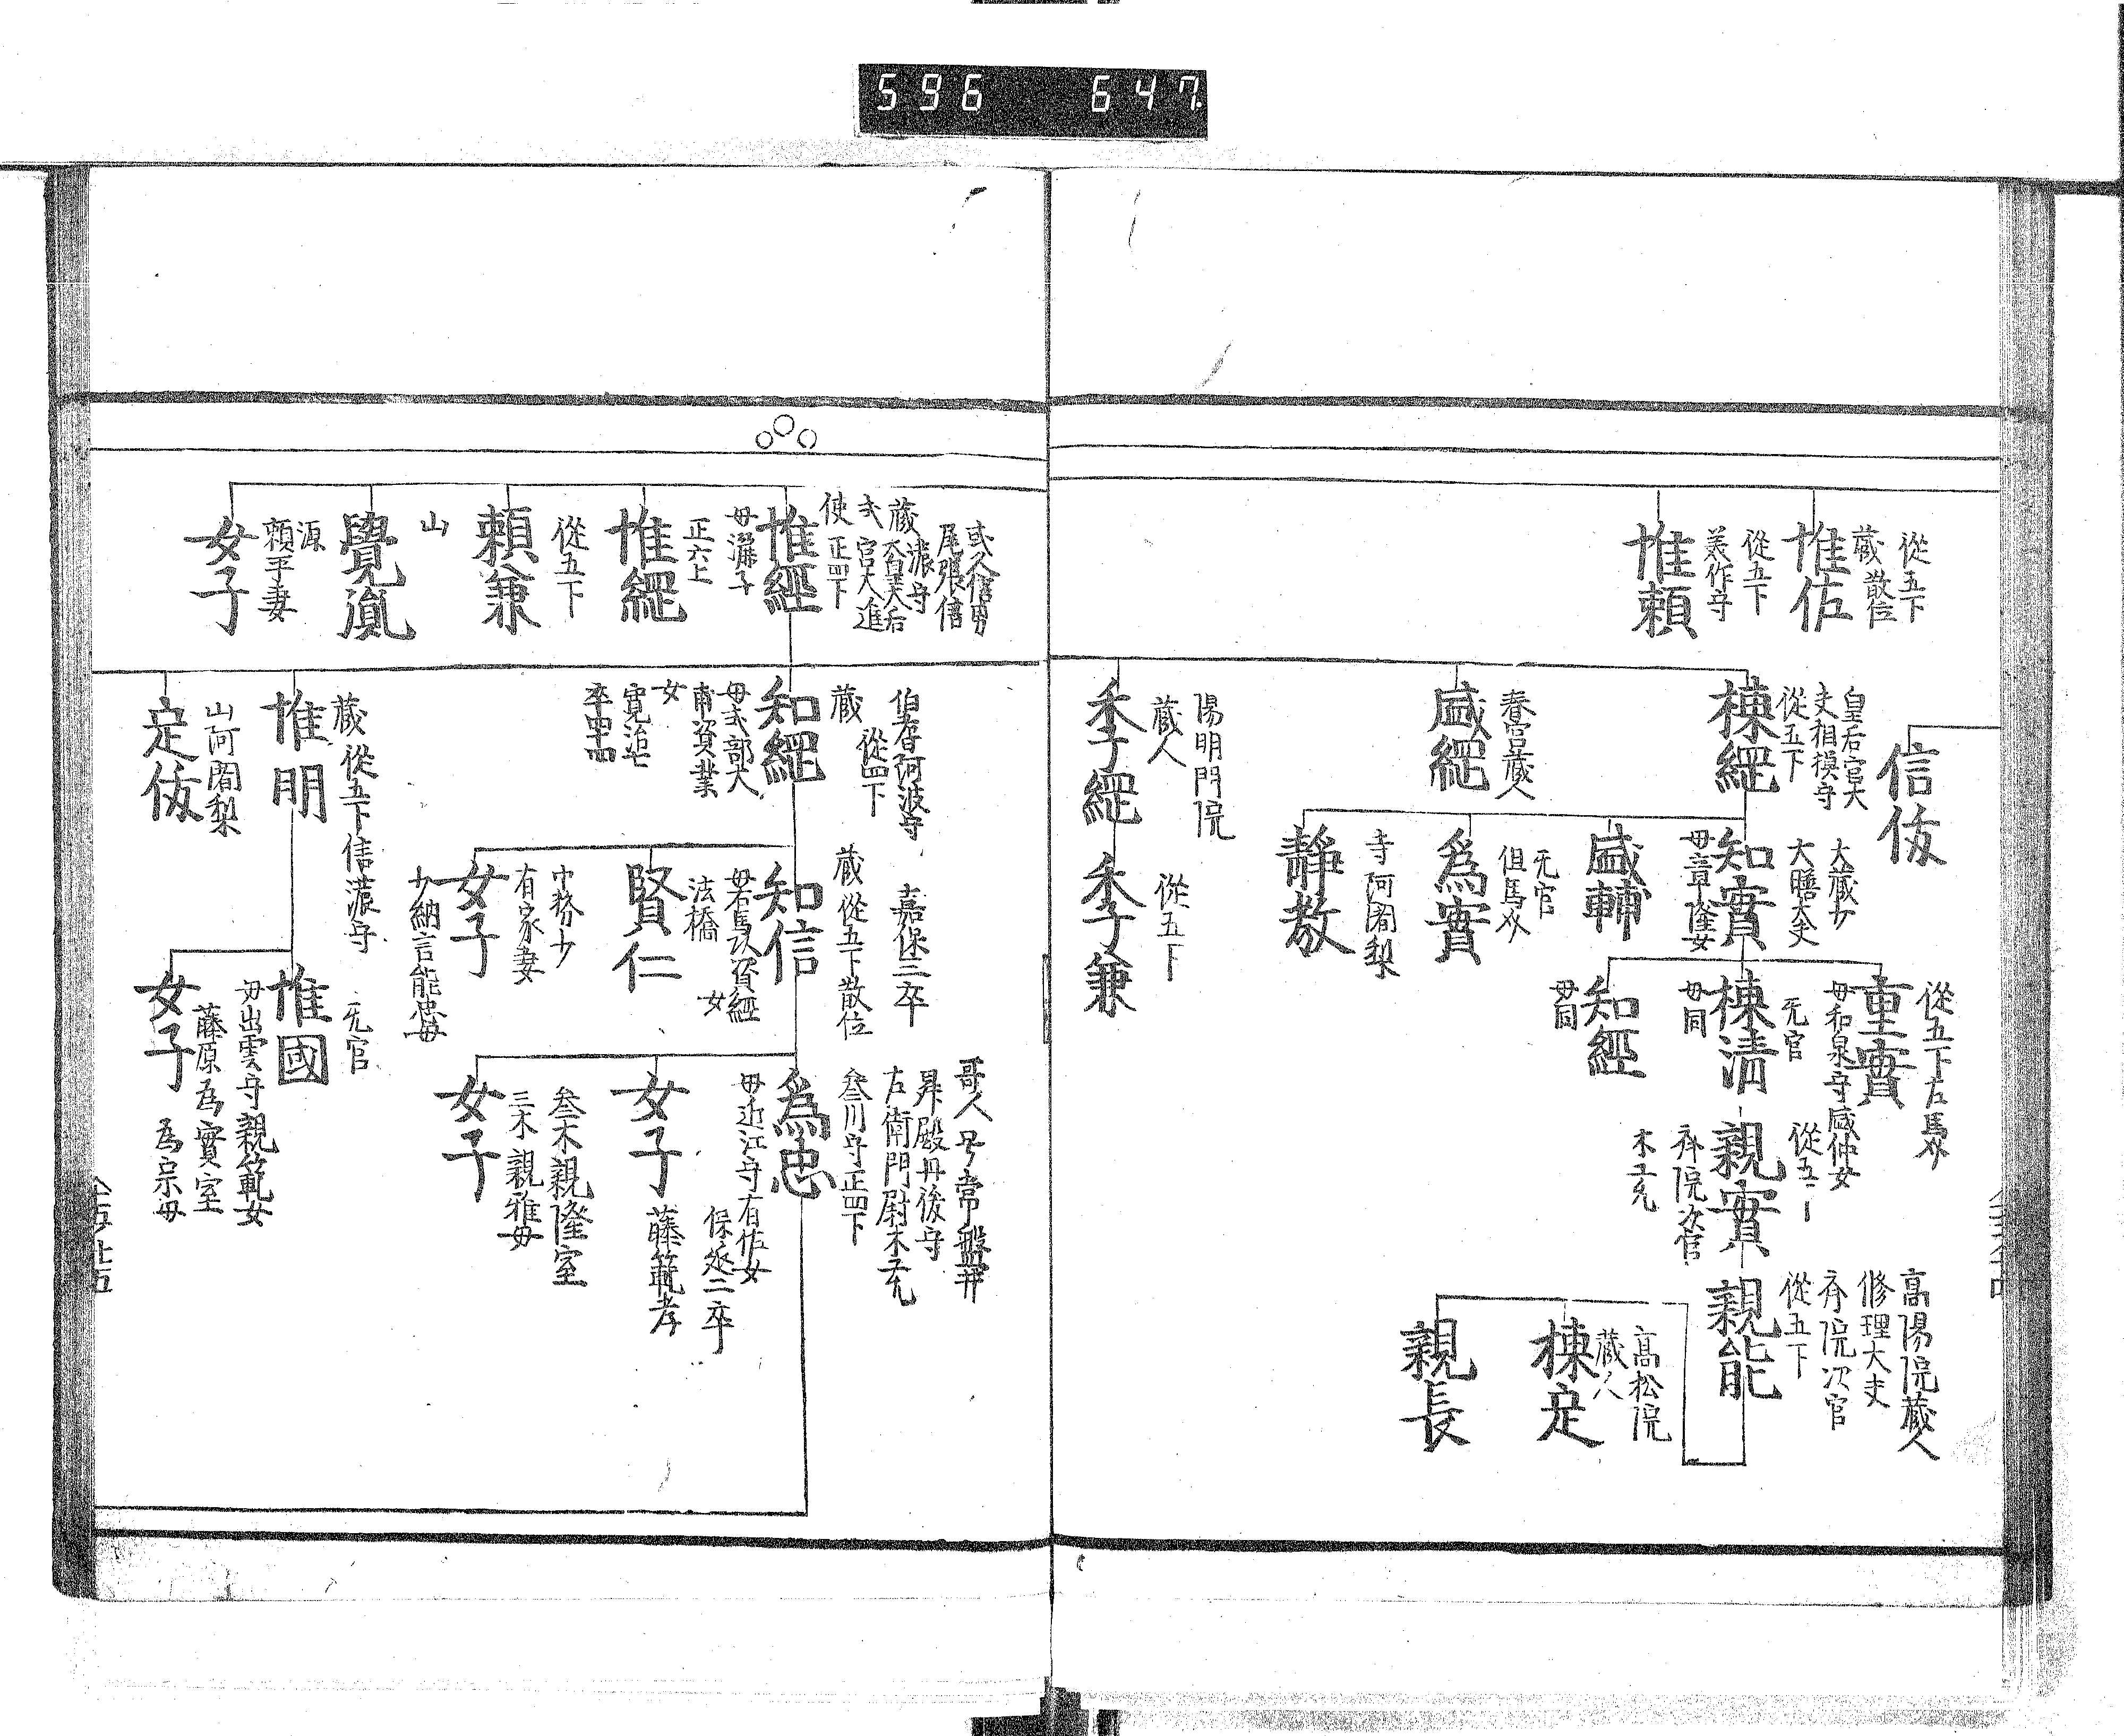 596 647
從五下
蔵 散位
惟佐
從五下
美作守
惟頼
信伇
皇后宮大
夫相摸守
從五下
棟經
春宮蔵人
盛經
陽明門院
蔵人
季經
大蔵少
大膳大夫
知實
母章隆女
盛輔
无官
但馬夘
爲實
寺阿闍梨
静敎
從五下
季兼
從五下左馬夘
重實
母和泉守盛仲女
无官
棟清
母同
知經
母同
親實
斉院次官
木工允
高陽院蔵人
修理大夫
斉院次官
從五下
親能
高松院
蔵人
棟定
親長
或人信男
尾張信
濃守
蔵 太皇太后
式 宮大進
使 正四下
惟經
正六上
惟經
從五下
頼兼
山
覺胤
源
頼平妻
女子
伯耆阿波守
從四下
蔵
知經
母式部大
甫資業
女
寛治七
卒四十四
蔵 從五下信濃守
惟明
山阿闍梨
定伇
嘉保三卒
蔵 從五下散位
知信
母右馬次資經
女
法橋
賢仁
中務少
有家妻
女子
少納言能忠母
无官
惟國
母出雲守親範女
藤原為實室
女子
為宗母
哥人 号常盤丼
昇殿丹後守
左衛門尉木工允
叄川守正四下
爲忠
母近江守有佐女
保延二卒
女子
藤範孝
叄木親隆室
三木親雅母
女子